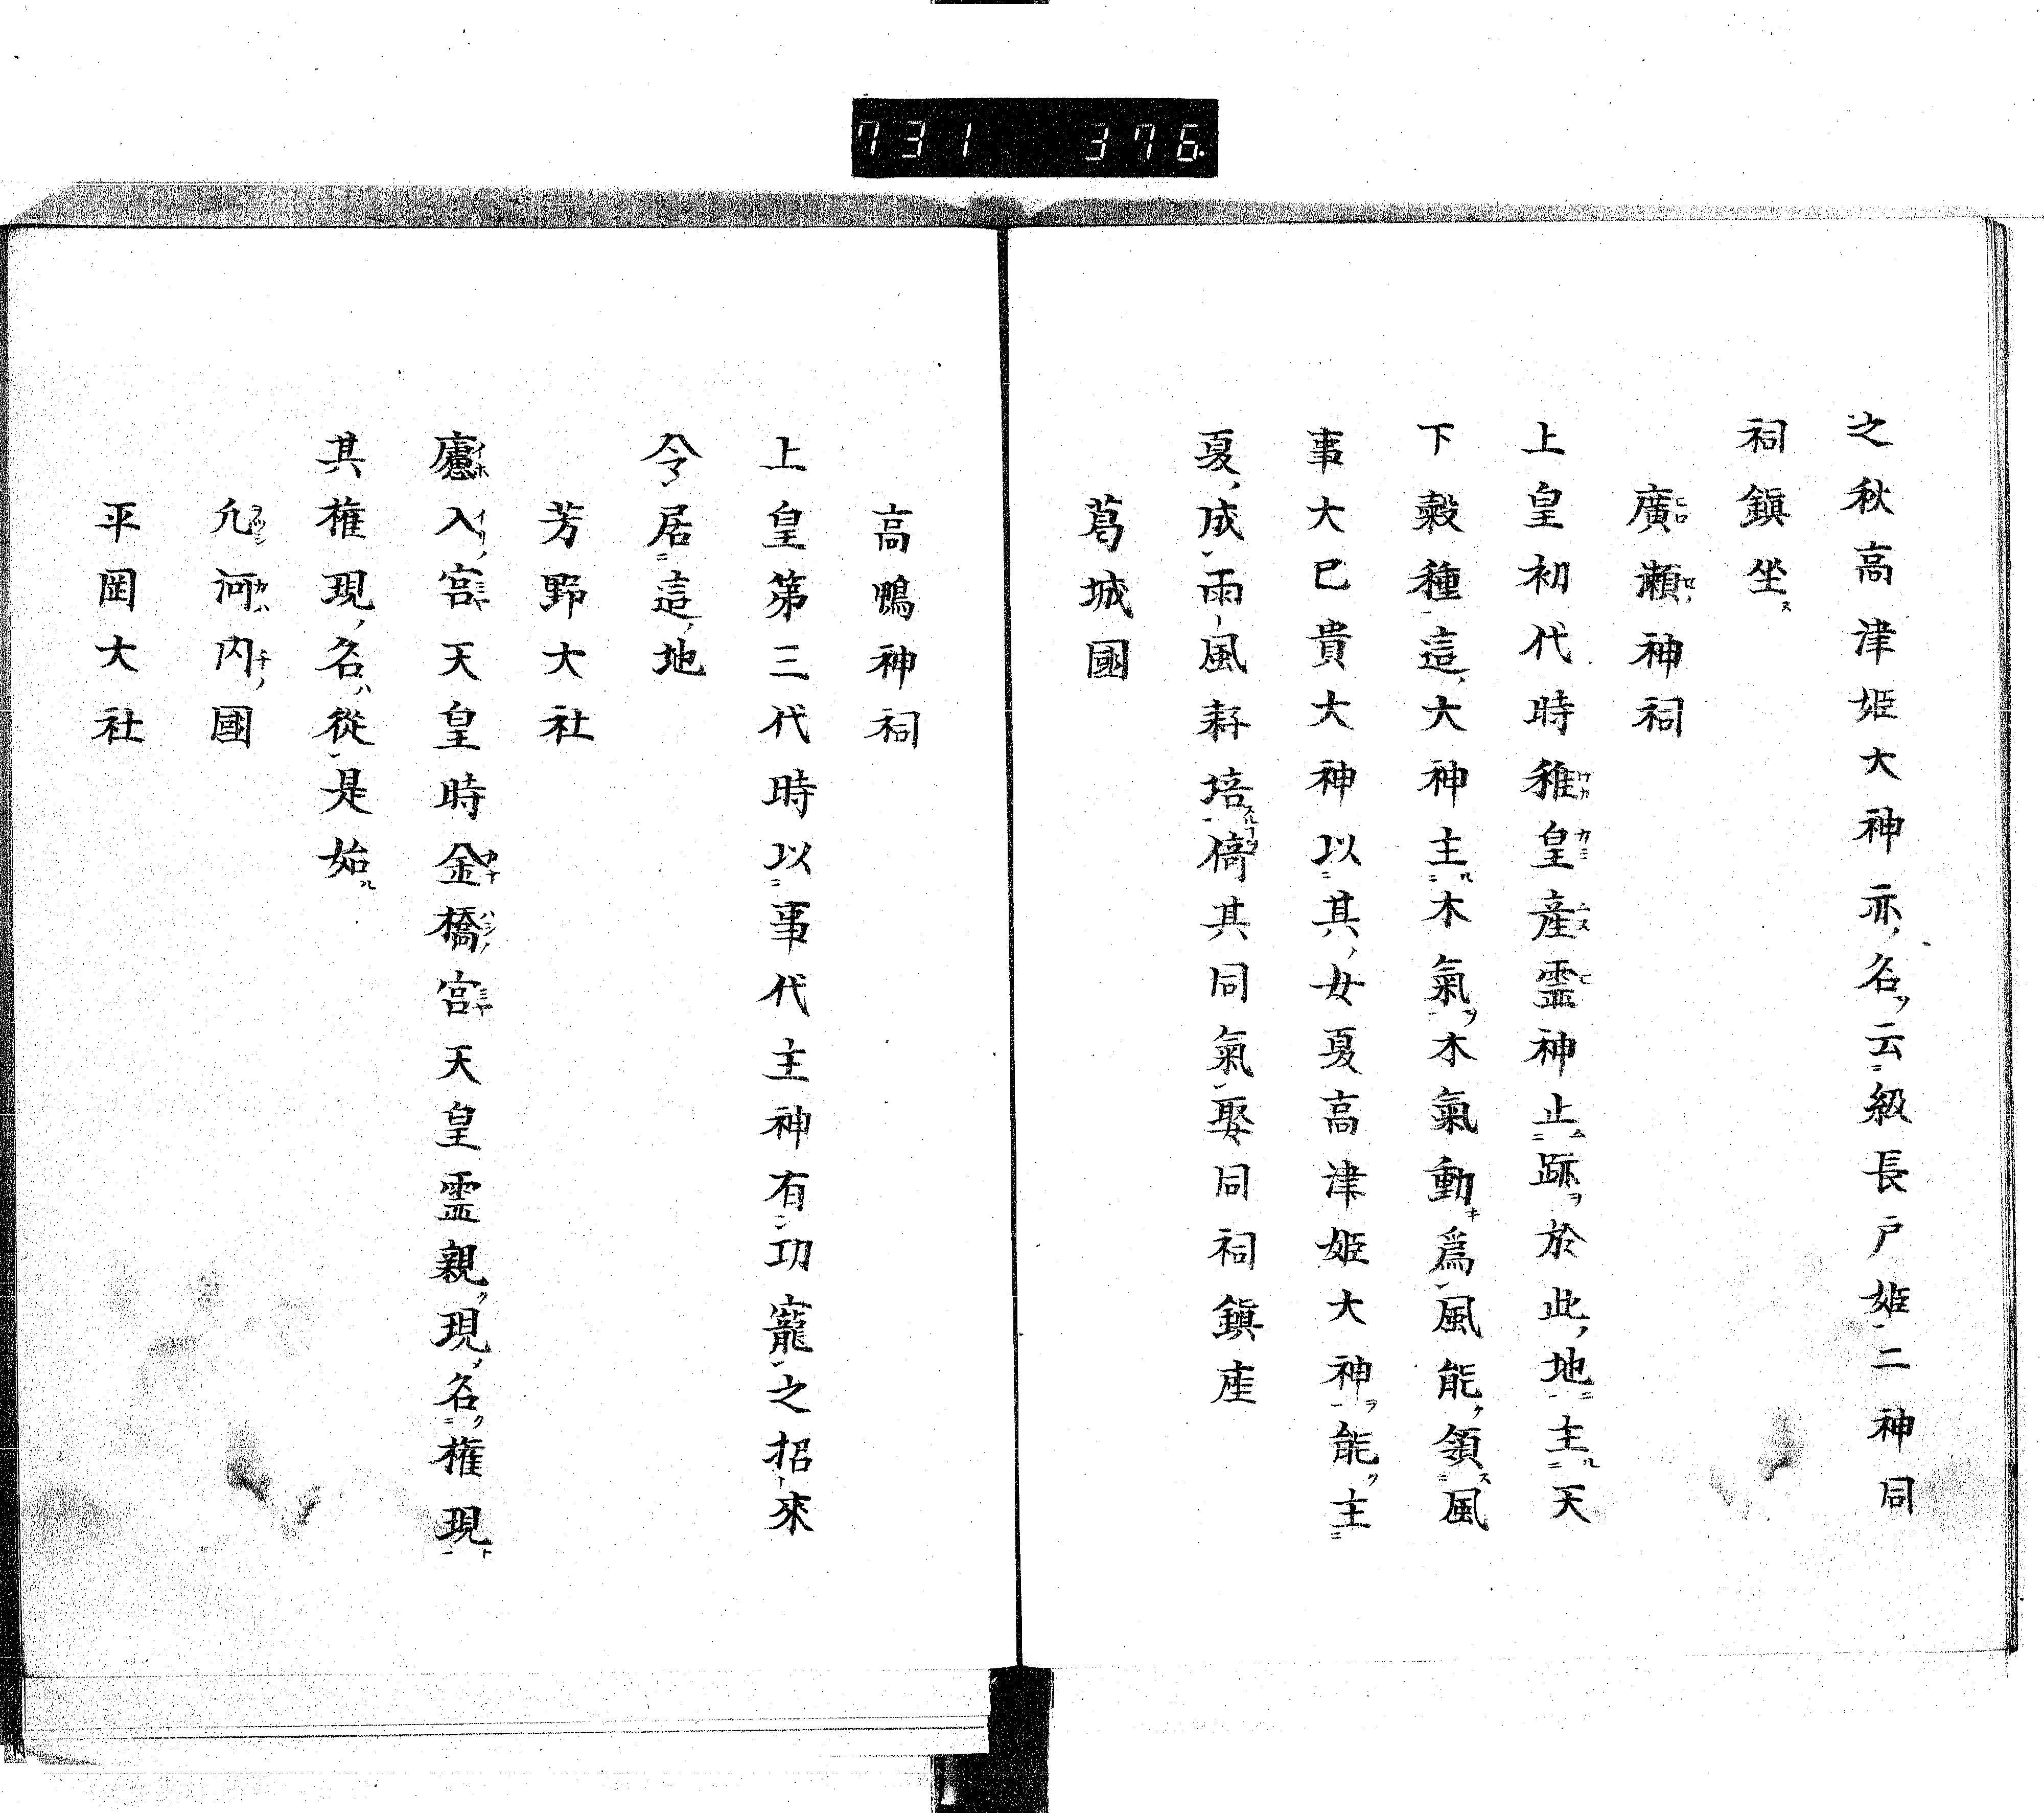 731 376
之秋高津姫大神亦名云級長戸姫二神同
祠鎮坐
廣瀬神祠
上皇初代時稚皇産霊神止跡於此地主天
下穀種這大神主木氣木氣動為風能領風
事大巳貴大神以其女夏高津姫大神能主
夏成雨風耔培倚其同氣娶同祠鎮座
葛城國
高鴨神祠
上皇第三代時以事代主神有功寵之招來
令居這地
芳野大社
廬入宮天皇時金橋宮天皇霊親現名権現
其権現名從是始
凡河内國
平岡大社